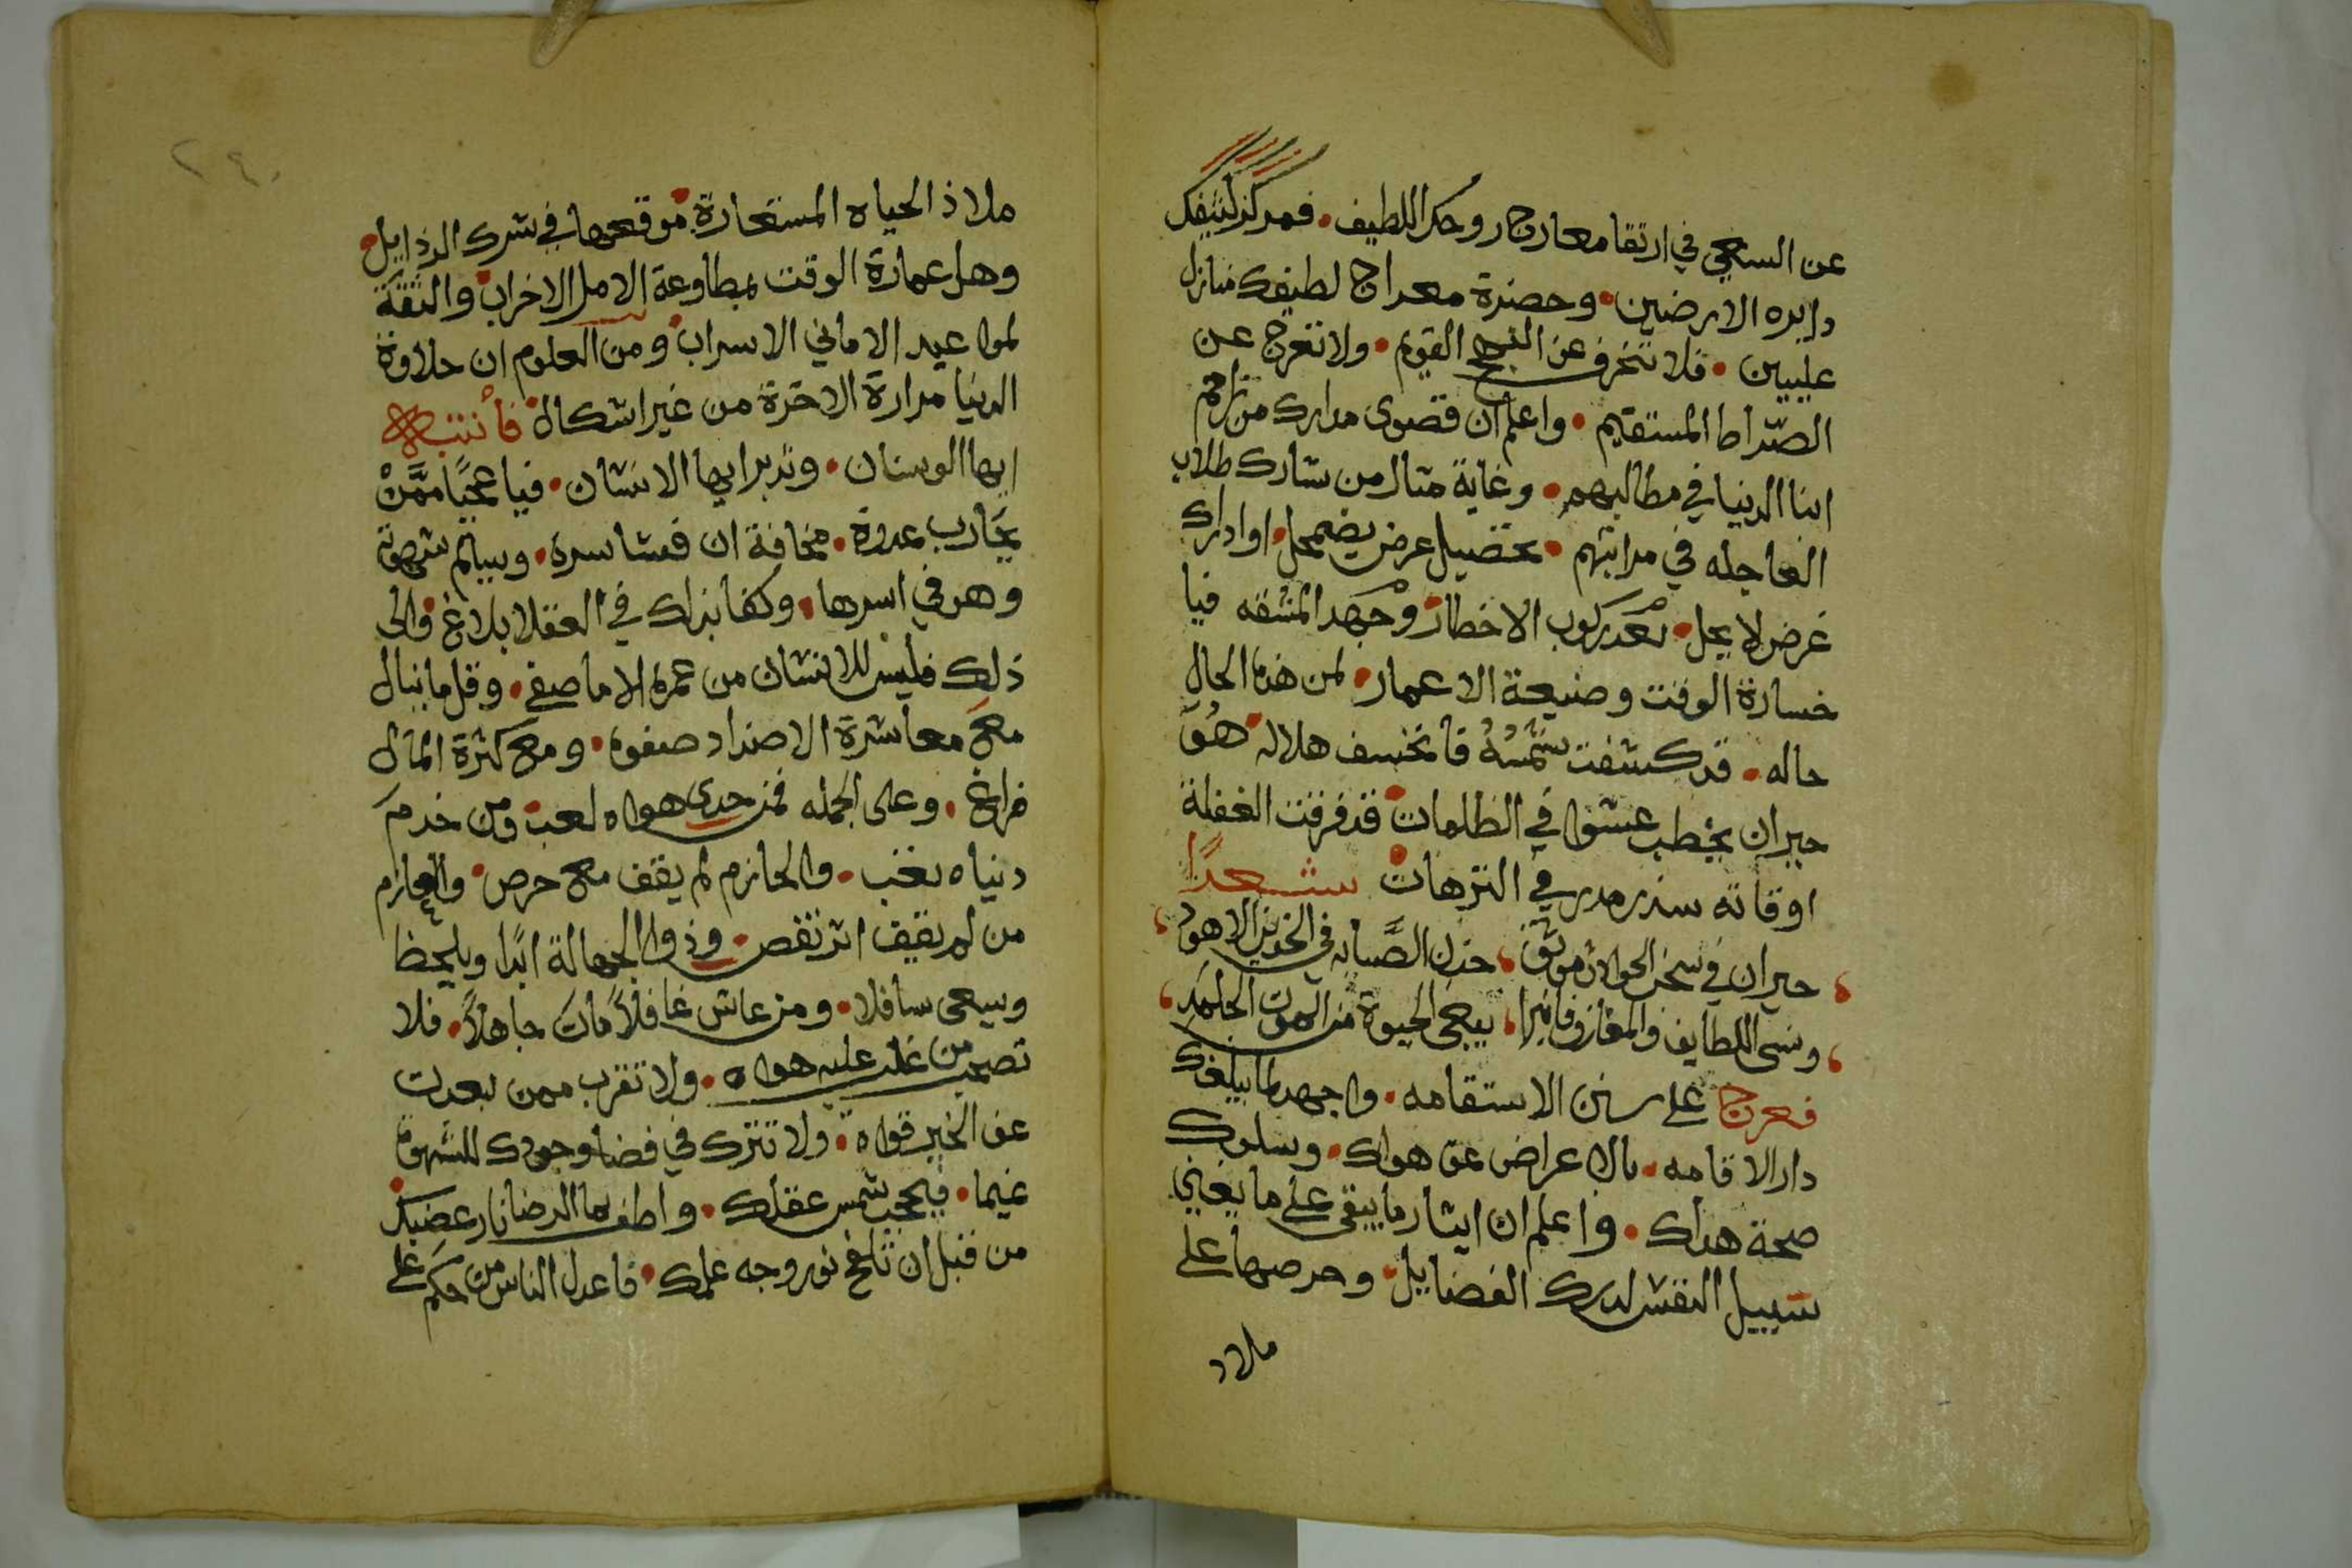 عن السعي في ارتقا معارج روحك اللطيف • فمركز كثيفك
دايره الارضين • وحضرة معراج لطيفك منازل
عليين • فلا تنحرف عن النهج القويم • ولا تعرج عن
الصراط المستقيم • واعلم ان قصوى مدارك من زاحم
ابنا الدنيا في مطالبهم • وغاية منال من شارك طلاب
العاجله في مراتبهم • تحصيل عرض يضمحل • او ادراك
غرض لا يحل • بعد ركوب الاخطار • وجهد المشقه فيا
خسارة الوقت وضيعة الاعمار • لمن هذه الحال
حاله • قد كسفت شمسه فانخسف هلاله • هو
حيران يخطب عشوا في الظلمات • قد فرقت الغفلة
اوقاته شذر مدر في الترهات • شعرا
حيران في سجن الحوادث موثق ، خدن الصبابه في
ونسى اللطايف والمغازوفانبرا ، يبغى الحيوة من الموات الجلمد ،
فعرج على سنن الاستقامه • واجهد لما يبلغك
دار الاقامه • بالاعراض عن هواك • وسلوك
صحة هداك • واعلم ان ايثار ما يبقى على ما يفنى
سبيل النفس لدرك الفضايل • وحرصها على
ملاد
٢٩٠
ملاذ الحياه المستعارة • موقعها في شرك الرذايل •
وهل عمارة الوقت بمطاوعة الامل الا خراب • والثقة
لمواعيد الاماني الا سراب • ومن العلوم ان حلاوة
الدنيا مرارة الاخرة من غير اشكال • فانتبه
ايها الوسنان • وتدبر ايها الانسان • فيا عجبا ممن
يحارب عدوه • مخافة ان فشا سره • ويسالم شهوته
وهو في اسرها • وكفا بذلك في العقلا بلاغ • والى
ذلك فليس للانسان من عمره الا ما صفي • وقل ما ينال
مع معاشرة الاضداد صفوه • ومع كثرة المال
فراغ • وعلى الجمله فمن حدى هواه لعب • ومن خدم
دنياه تعب • والحازم لم يقف مع حرص • والعازم
من لم يقف اثر نقص • وذوا الجهالة ابدا ويلحظ
ويسعى سافلا • ومن عاش غافلا مات جاهلا • فلا
تصحب من غلب عليه هواه • ولا تقرب ممن بعدت
عن الخير قواه • ولا تترك في فضا وجودك للشهوة
غيما • فيحجب شمس عقلك • واطف بما الرضا نار غضبك •
من قبل ان تلفح نور وجه علمك • فاعدل الناس من حكم على